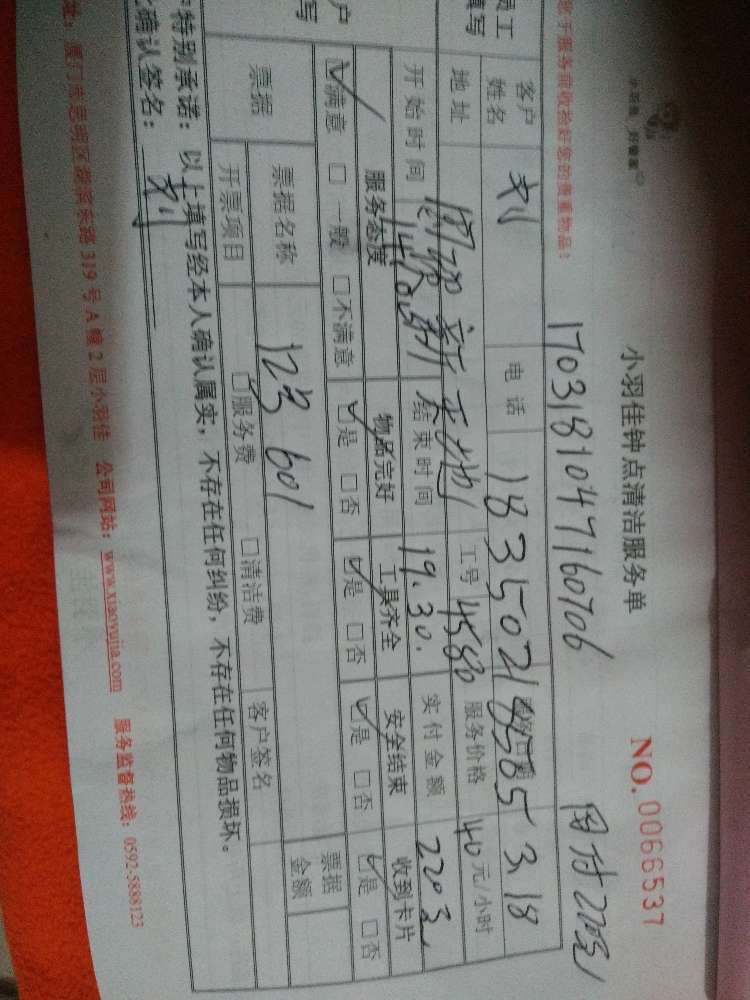 小羽佳 好管家
小羽佳钟点清洁服务单
NO. 0066537
1703181047160706
于服务前收捡好您的贵重物品！
员工
填写
客户
姓名
刘
电话
18350214585
3.18
地址
新天地
工号
4580
服务价格
40元/小时
开始时间
结束时间
19.30.
实付金额
220元
户
写
服务态度
物品完好
工具齐全
安全结束
收到卡片
☑满意 □一般 □不满意
☑是 □否
☑是 □否
☑是 □否
☑是 □否
票据
票据名称
12号 601
票据
金额
开票项目
□服务费 □清洁费
客户签名
户特别承诺：以上填写经本人确认属实，不存在任何纠纷，不存在任何物品损坏。
确认签名：刘
址：厦门市思明区湖滨东路319号A幢2层小羽佳 公司网站：www.xiaoyujia.com 服务监督热线：0592-5888123